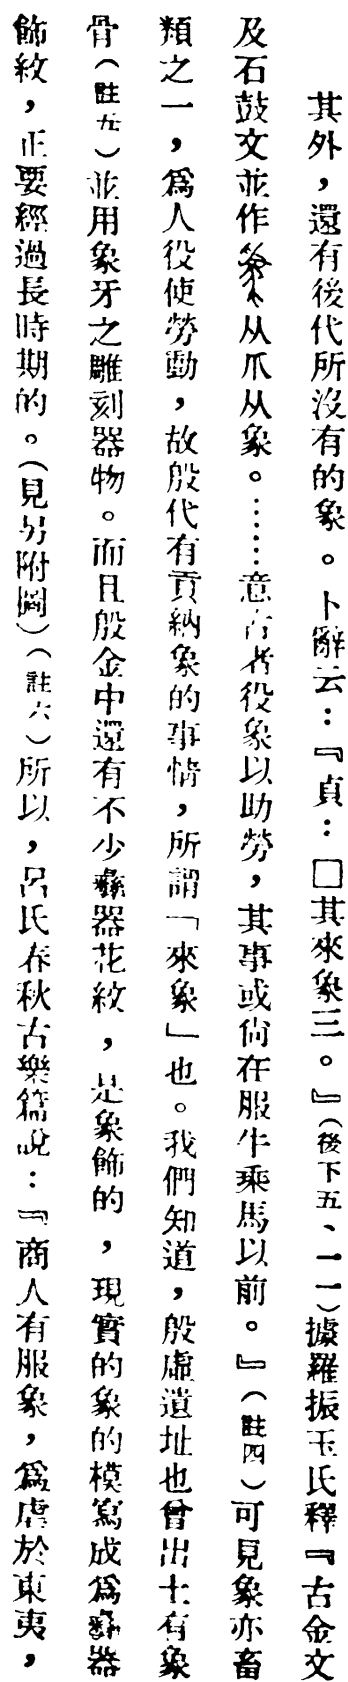 其外，還有後代所沒有的象。卜辭云：『貞：□其來象三。』（後下五、一一）據羅振玉氏釋『古金文
及石鼓文並作𤔡从爪从象。……意古者役象以助勞，其事或尙在服牛乘馬以前。』（註四）可見象亦畜
類之一，爲人役使勞動，故殷代有貢納象的事情，所謂「來象」也。我們知道，殷虛遺址也曾出土有象
骨（註五）並用象牙之雕刻器物。而且殷金中還有不少彝器花紋，是象飾的，現實的象的模寫成爲彝器
飾紋，正要經過長時期的。（見另附圖）（註六）所以，呂氏春秋古樂篇說：『商人有服象，爲虐於東夷，